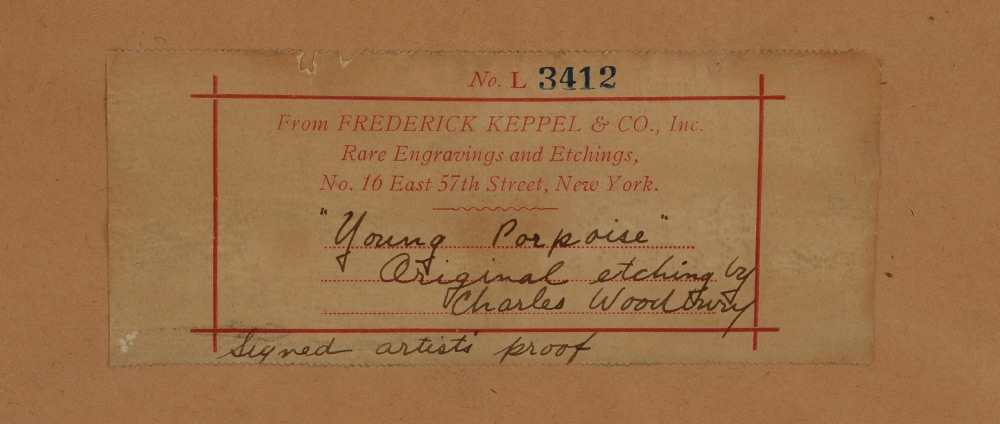 No. L 3412
From FREDERICK KEPPEL & CO., Inc.
Rare Engravings and Etchings,
No. 16 East 57th Street, New York.
"Young Porpoise"
Original etching by
Charles Woodbury
Signed artist's proof